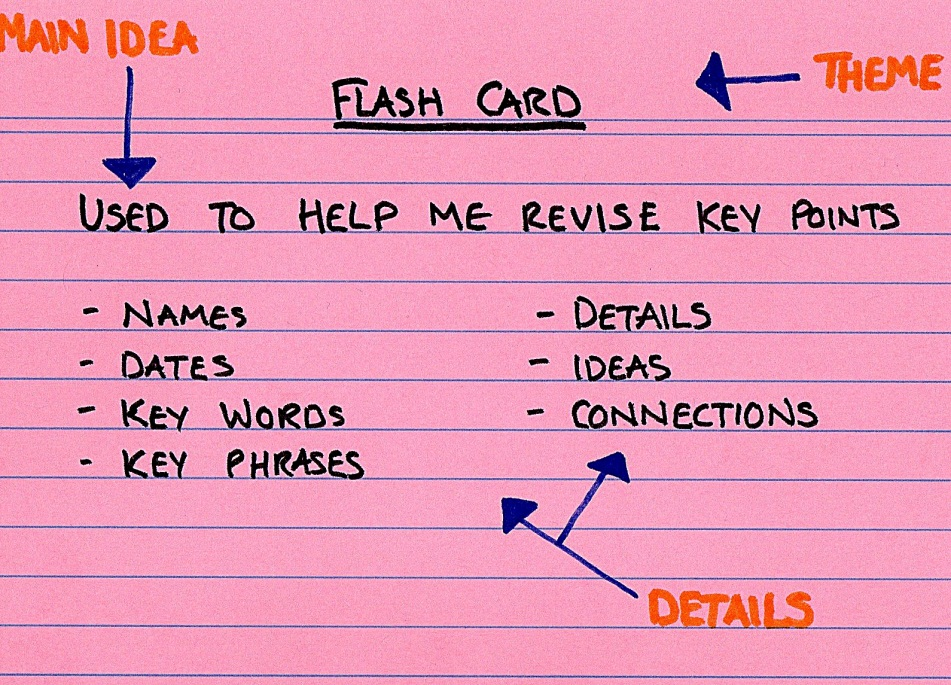 MAIN IDEA
THEME
FLASH CARD
USED TO HELP ME REVISE KEY POINTS
- NAMES
- DATES
- KEY WORDS
- KEY PHRASES
- DETAILS
- IDEAS
- CONNECTIONS
DETAILS